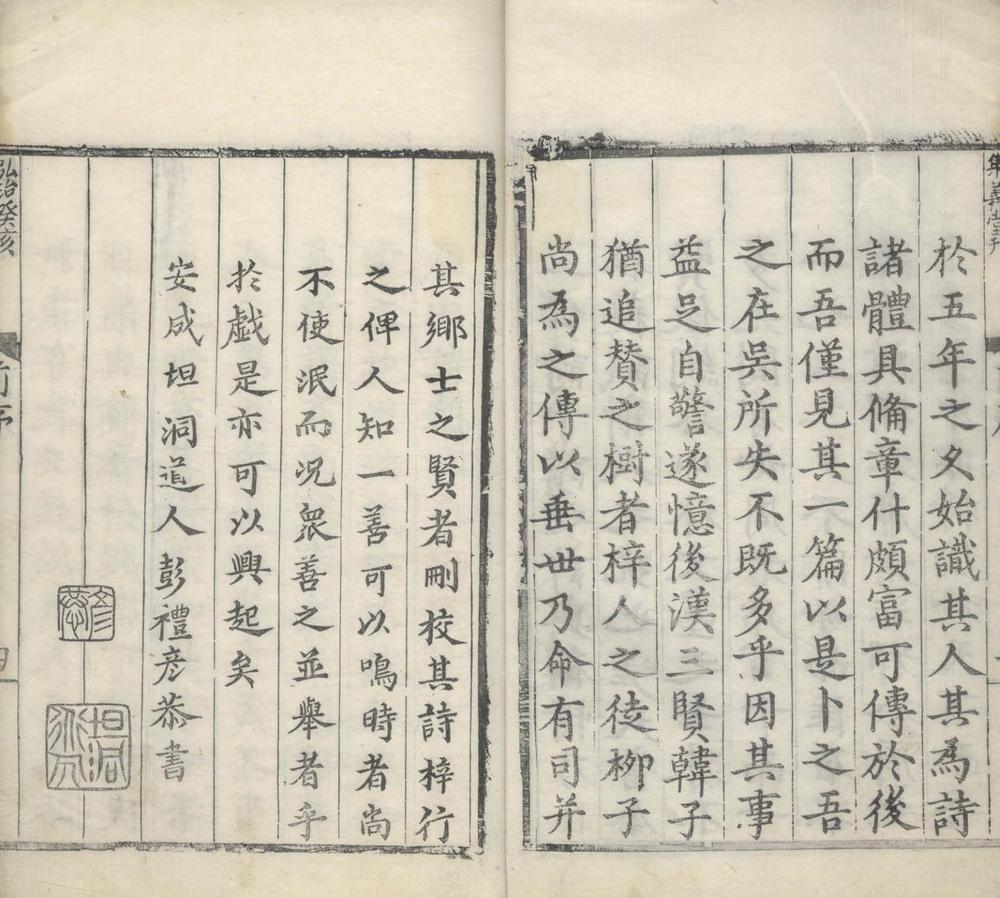 於五年之久始識其人其為詩
諸體具俻章什頗富可傳於後
而吾僅見其一篇以是卜之吾
之在吳所失不既多乎因其事
益足自警遂憶後漢三賢韓子
猶追賛之樹者梓人之徒柳子
尚為之傳以垂世乃命有司并
其鄉士之賢者刪校其詩梓行
之俾人知一善可以鳴時者尚
不使泯而况衆善之並舉者乎
於戯是亦可以興起矣
安成坦洞道人彭禮彥恭書
彥恭
弘治癸亥
前序
四